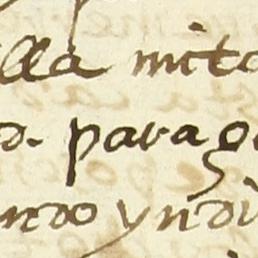 illa mita
d. parag
ando yndi